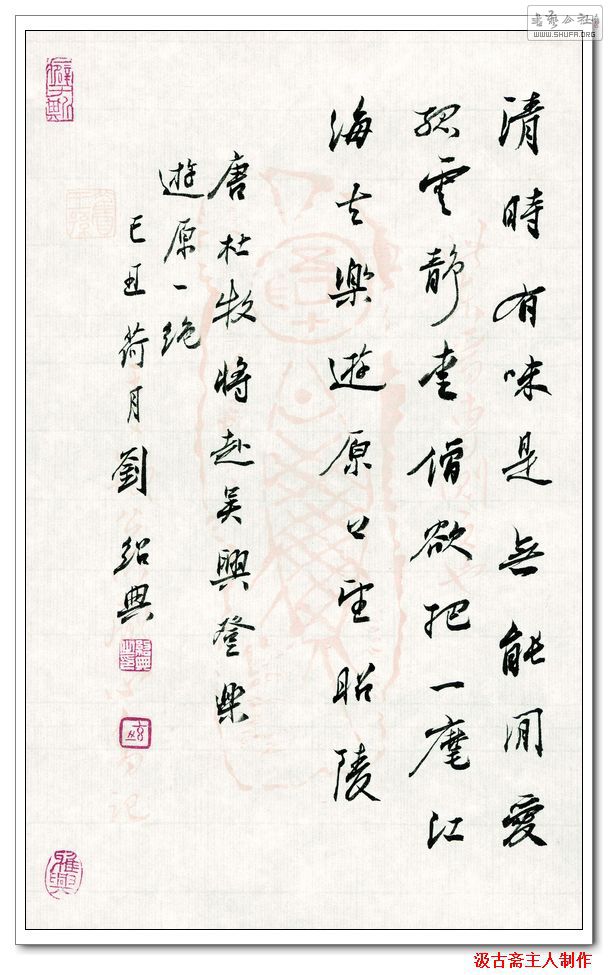 书艺公社
WWW.SHUFA.ORG
清時有味是無能閒愛
孤雲靜愛僧欲把一麾江
海去樂遊原上望昭陵
唐杜牧將赴吳興登樂
遊原一絕
己丑荷月劉紹典
雅興
汲古斋主人制作